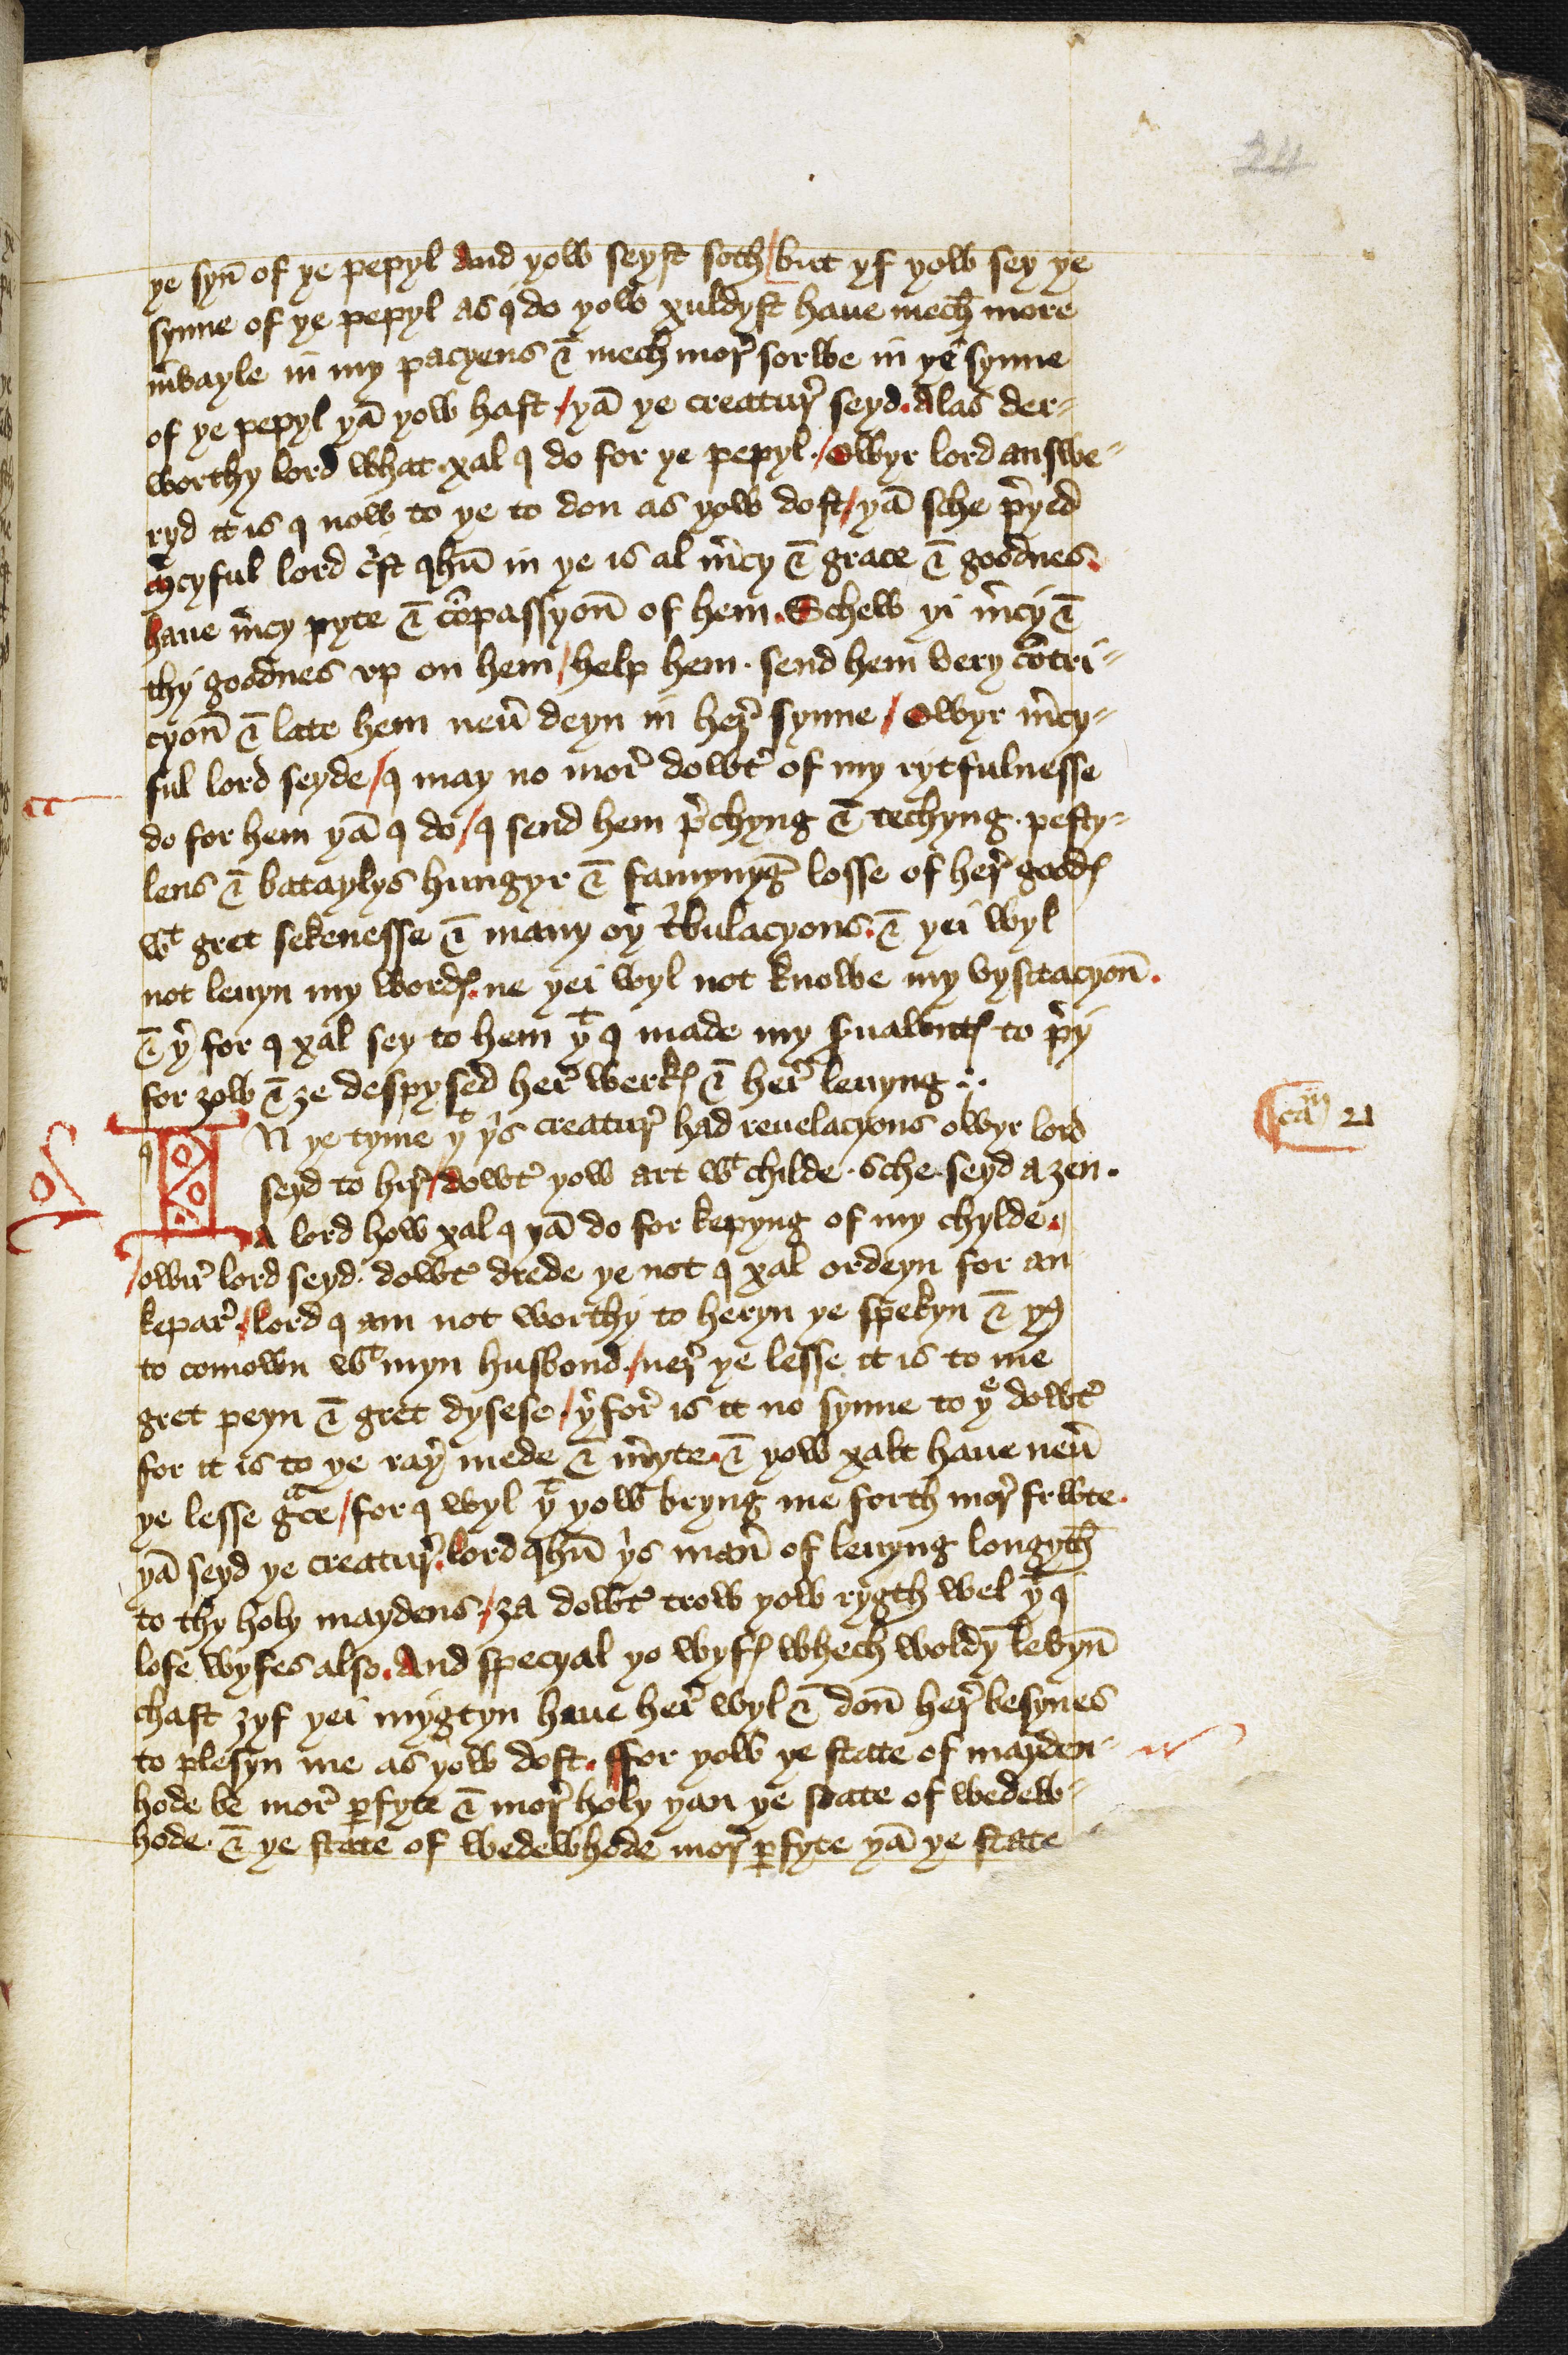 24
ye syn̄ of ye pepyl And yow seyst soth / but yf yow sey ye
synne of ye pepyl as I do yow xuldyst haue mech more
m̉vayle in my pacyens & mech mor̉ sorwe in ye synne
of ye pepyl yā yow hast / yā ye creatur̉ seyd. Alas der-
worthy lord what xal I do for ye pepyl. / Owyr lord answe-
ryd it is I now to ye to don as yow dost / yā sche p̉yed
M̉cyful lord c̉st Ihū in ye is al m̉cy & grace & goodnes.
haue m̉cy pyte & cōpassyon̄ of hem. Schew yi m̉cy &
thy goodnes vp on hem / help hem. send hem very cōtri-
cyon̄ & late hem neủ deyn in her̉ synne / Owyr m̉cy-
ful lord seyde / I may no mor̉ dowt̉ of my rytfulnesse
do for hem yā I do / I send hem p̉chyng & techyng. pesty-
lens & bataylys hungyr & famynyḡ losse of her̉ goodꝭ
wᵗ gret sekenesse & many oỷ t̉bulacyons. & yei wyl
not leuyn my wordꝭ. ne yei wyl not knowe my vysitacyon̄.
& ỷ for I xal sey to hem yᵗ I made my s̉uawntꝭ to p̉y
for ȝow & ȝe despysed her̉ werkꝭ & her̉ leuyng
caᵐ 21
IN ye tyme yᵗ ỷs creatur̉ had reuelacyons owyr lord
seyd to hir̉ / dowt̉ yow art wᵗ childe. Sche seyd aȝen.
A lord how xal I yā do for kepyng of my chylde.
/ owir̉ lord seyd. dowt̉ drede ye not I xal ordeyn for an
kepar̉. / lord I am not worthy to heryn ye spekyn & yꝰ
to comown wᵗ myn husbond. / ner̉ ye lesse it is to me
gret peyn & gret dysese. / ỷfor̉ is it no synne to yᵉ dowt̉
for it is to ye raỷ mede & m̉yte. & yow xalt haue neủ
ye lesse gᵃce / for I wyl yᵗ yow bryng me forth mor̉ frwte.
yā seyd ye creatur̉. lord Ihū ỷs man̉ of leuyng longyth
to thy holy maydens. / ȝa dowt̉ trow yow rygth wel yᵗ I
lofe wyfes also. And specyal yo wyfꝭ whech woldȳ levyn̄
chast ȝyf yei mygtyn haue her̉ wyl & don̄ her̉ besynes
to plesyn me as yow dost. ffor yow ye state of mayden-
hode be mor̉ p̱fyte & mor̉ holy yan ye state of wedew-
hode. & ye state of wedewhode mor̉ p̱fyte yā ye state